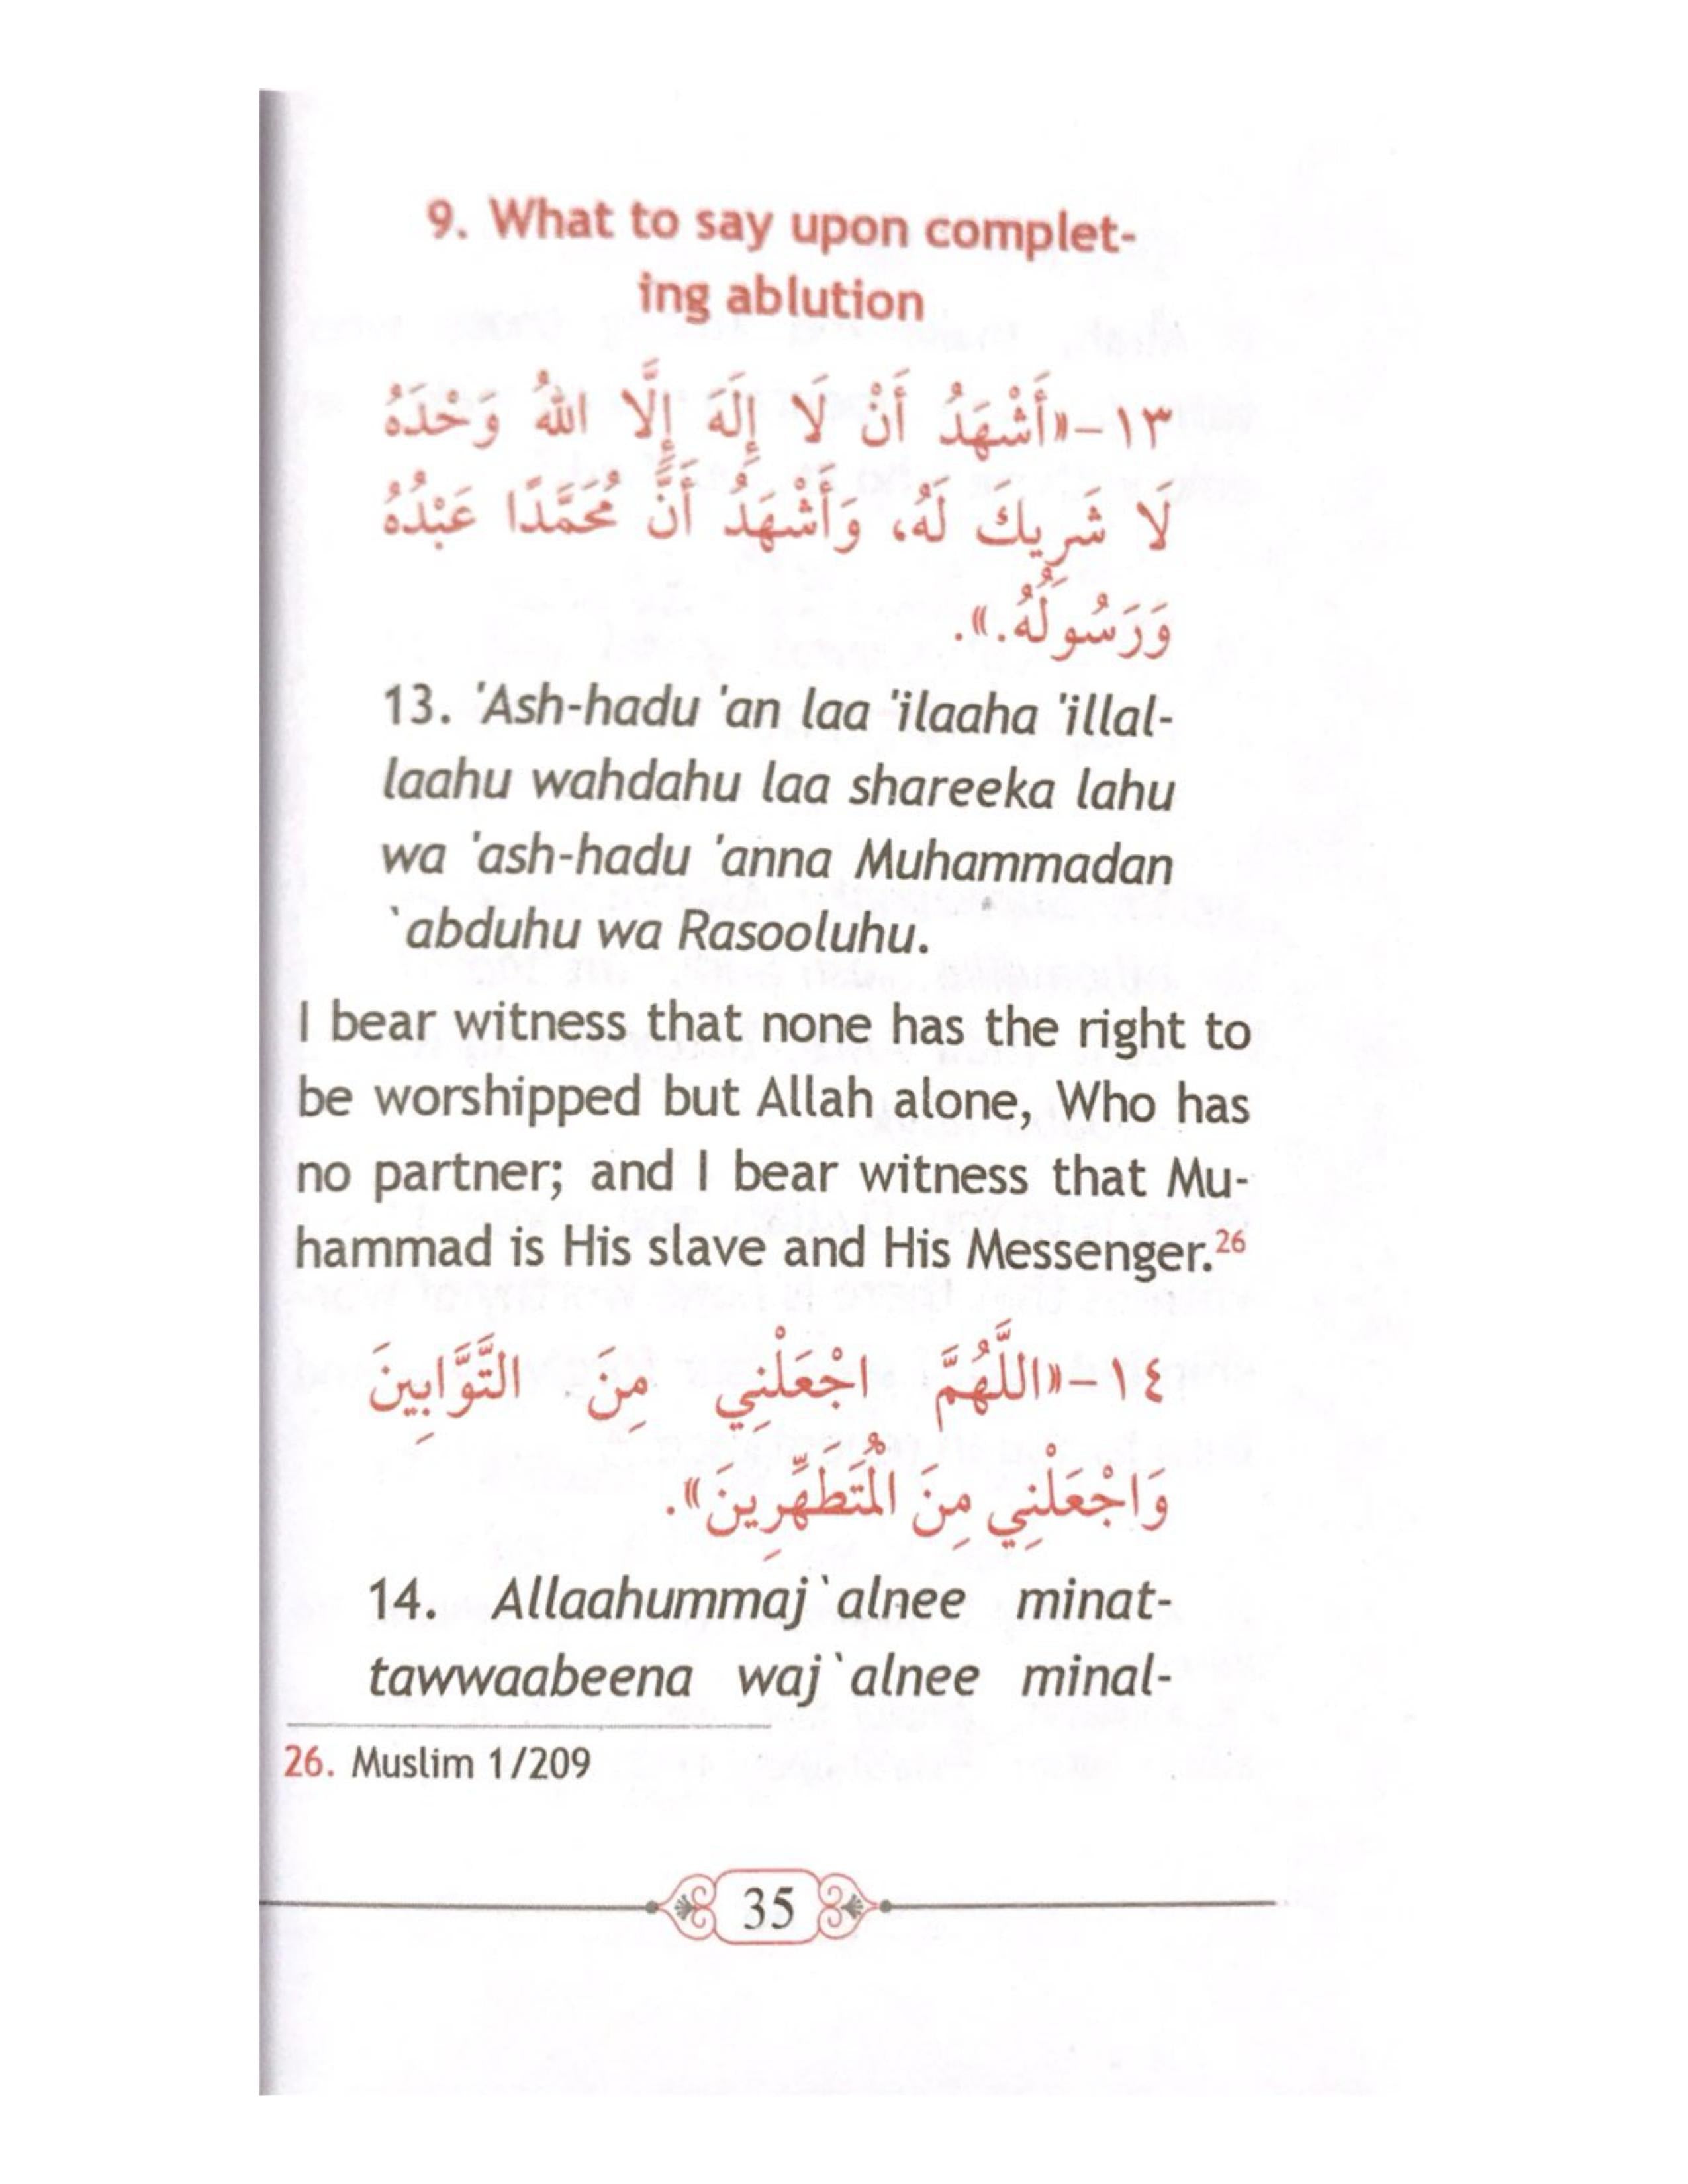 9. What to say upon complet-
ing ablution
١٣-«أَشْهَدُ أَنْ لَا إِلَهَ إِلَّا اللهُ وَحْدَهُ
لَا شَرِيكَ لَهُ، وَأَشْهَدُ أَنَّ مُحَمَّدًا عَبْدُهُ
وَرَسُولُهُ.».
13. 'Ash-hadu 'an laa 'ilaaha 'illal-
laahu wahdahu laa shareeka lahu
wa 'ash-hadu 'anna Muhammadan
`abduhu wa Rasooluhu.
I bear witness that none has the right to
be worshipped but Allah alone, Who has
no partner; and I bear witness that Mu-
hammad is His slave and His Messenger.26
١٤-«اللَّهُمَّ اجْعَلْنِي مِنَ التَّوَّابِينَ
وَاجْعَلْنِي مِنَ الْمُتَطَهِّرِينَ».
14. Allaahummaj`alnee minat-
tawwaabeena waj`alnee minal-
26. Muslim 1/209
35